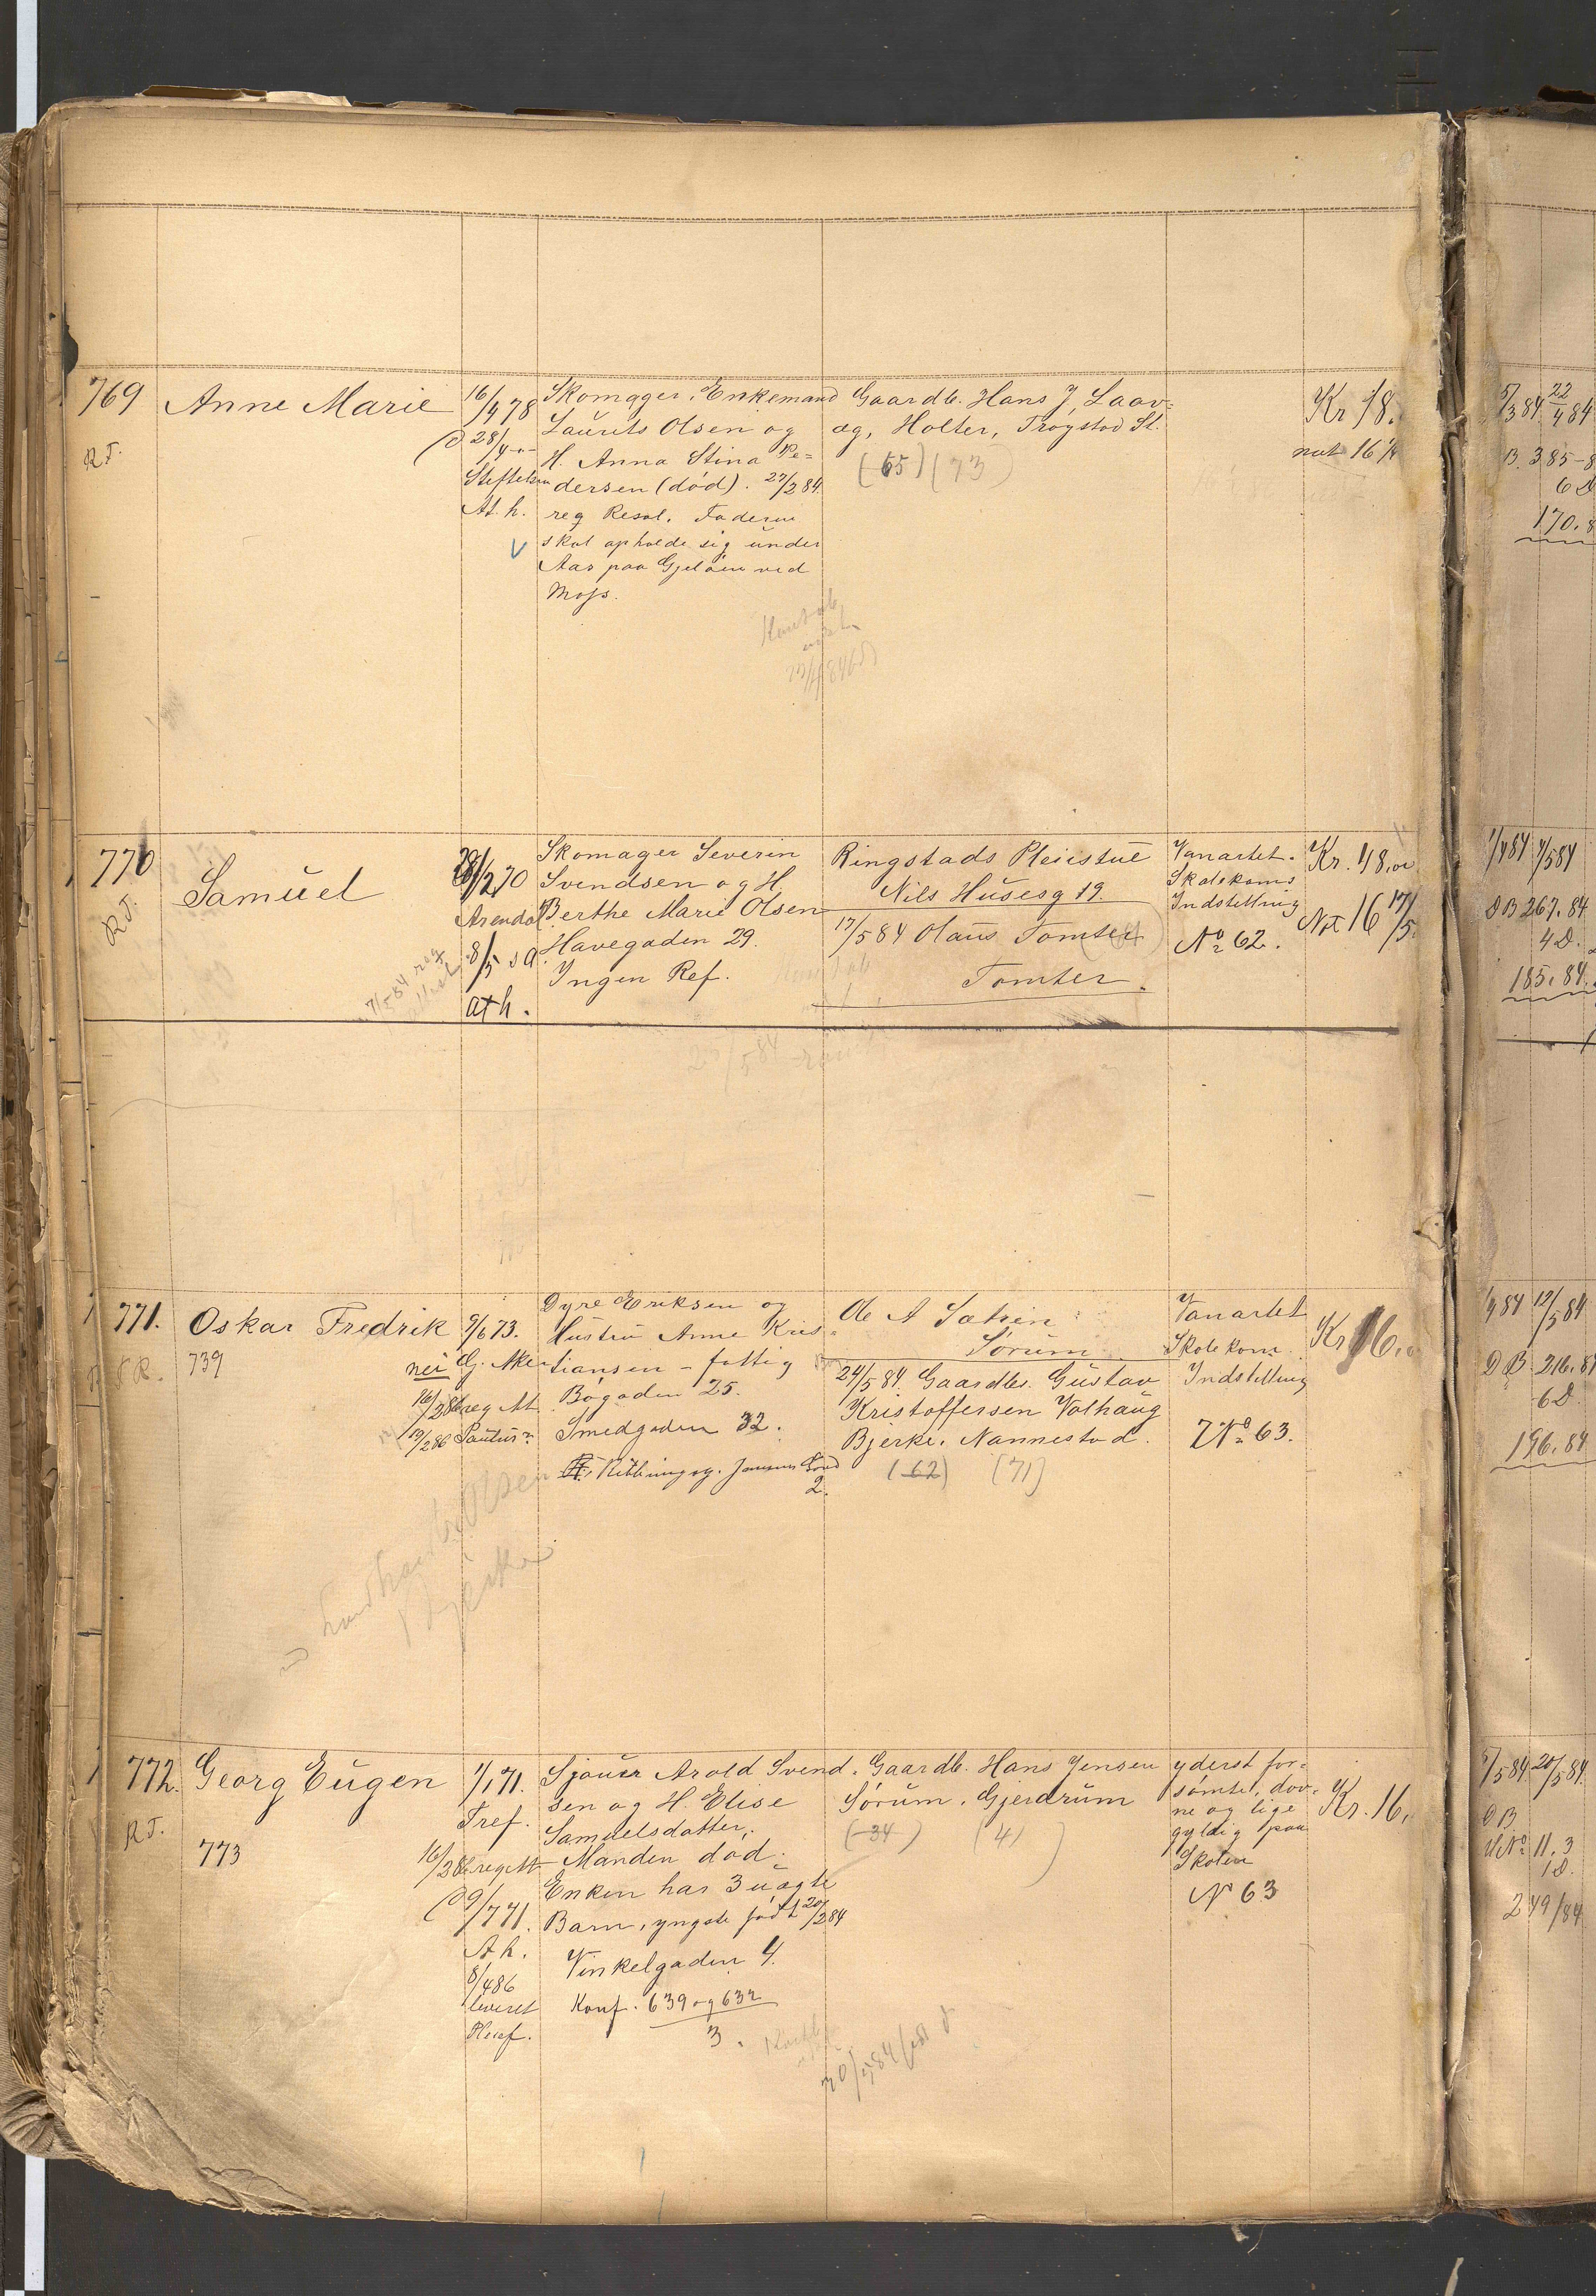 769
R.T.
Anne Marie
16/4 78
D 28/4
At. h.
Skomager, Enkemand
Laurits Olsen og
H. Anna Stina Pe=
dersen (död). 27/2 84
reg Resol. Faderen
skal opholde sig under
Aar paa Gjelöen ved
Moss.
Gaardb. Hans J. Laov=
æg, Holter, Trögstad St.
(65) (73)
Kr 18.
5/3 84 22/4 84
B. 385-8
6 D
170.8
770
R.T.
Samuel
28/2 70
Arendal
8/5 s a
ath.
7/5 84 reg
Skomager Severin
Svendsen og H.
Berthe Marie Olsen
Havegaden 29.
Ingen Ref.
Ringstads Pleiestue
Nils Huusesg 19.
17/5 84 Olaus Tomter
Tomter.
Vanartet.
Skolekoms
Indstilling
No 62.
Kr. 48,00
Not 16 17/5.
1/4 84 7/5 84
D B 267.84
4 D.
185.84.
771.
Oskar Fredrik
739
9/6 73.
nei
16/2 86 reg At
19/2 86
Dyre Eriksen og
Hustru Anne Kris=
tiansen - fattig
Bögaden 25.
Smedgaden 32.
2.
Ole A Sætren
Sörum
24/5 84. Gaardbr. Gustav
Kristoffersen Volhaug
Bjerke, Nannestad.
(62) (71)
Vanartet
Skolekom.
Indstilling
No 63.
Kr 16.
1/4 84 12/5 84
D B 216.84
6 D.
196.84
Olsen
772.
R.T.
Georg Eugen
773
1/1 71.
Tref.
16/2 86 reg At
D 9/7 71.
At h.
8/4 86
leveret
Pleief.
Sjouer Arold Svend=
sen og H. Elise
Samuelsdatter,
Manden död.
Enken har 3 uægte
Barn, yngste född 20/2 84
Vinkelgaden 4.
Konf. 639 og 632
3.
Gaardb. Hans Jensen
Sörum, Gjerdrum
(34) (4)
yderst for=
sömt, dov=
ne og lige
gyldig paa
Skolen
No 63
Kr. 16,
5/5 84 20/5 84.
D B
No 11.3
1 D.
249/84